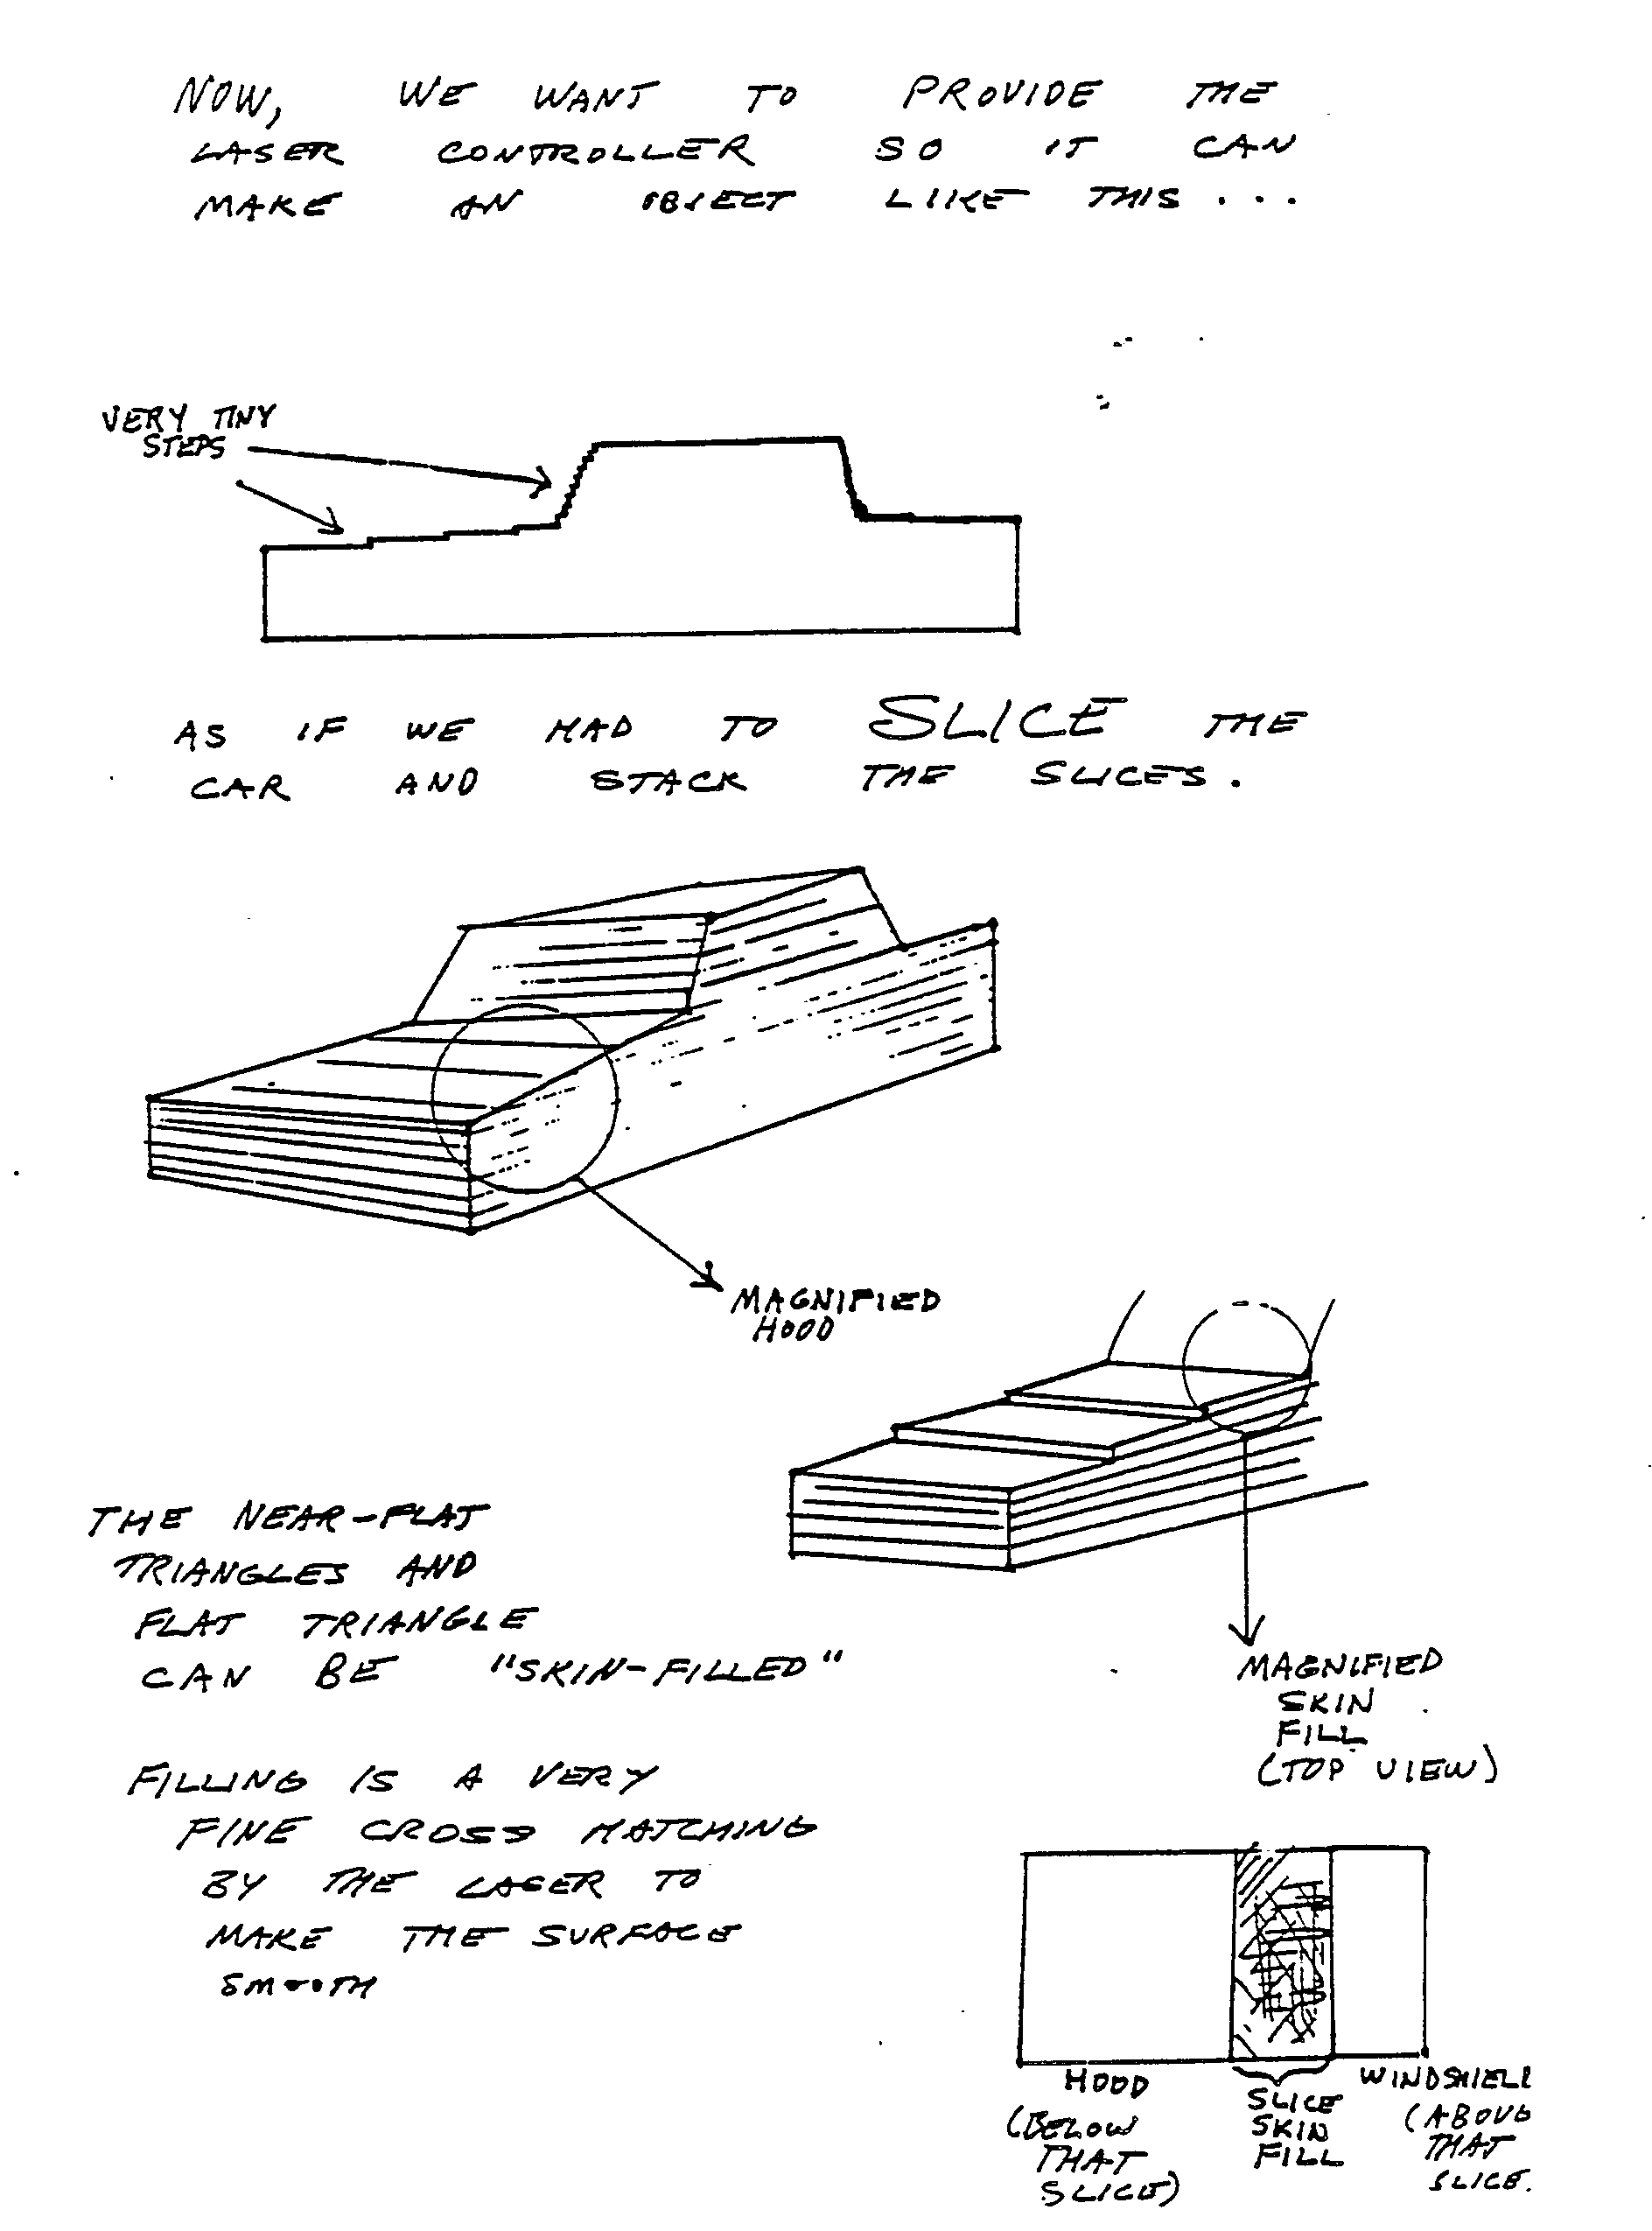 NOW, WE WANT TO PROVIDE THE
LASER CONTROLLER SO IT CAN
MAKE AN OBJECT LIKE THIS...
VERY TINY
STEPS
AS IF WE HAD TO SLICE THE
CAR AND STACK THE SLICES.
MAGNIFIED
HOOD
THE NEAR-FLAT
TRIANGLES AND
FLAT TRIANGLE
CAN BE "SKIN-FILLED"
MAGNIFIED
SKIN
FILL
(TOP VIEW)
FILLING IS A VERY
FINE CROSS HATCHING
BY THE LASER TO
MAKE THE SURFACE
SMOOTH
HOOD
(BELOW
THAT
SLICE)
SLICE
SKIN
FILL
WINDSHIEL
(ABOVE
THAT
SLICE.